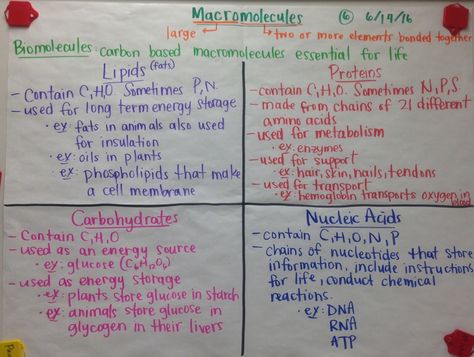 Macromolecules ⑥ 6/14/16
large two or more elements bonded together
Biomolecules: carbon based macromolecules essential for life
Lipids (fats)
- contain C,H,O. Sometimes P,N.
- used for long term energy storage
• ex: fats in animals also used
for insulation
• ex: oils in plants
• ex: phospholipids that make
a cell membrane
Proteins
- contain C,H,O. Sometimes N,P,S.
- made from chains of 21 different
amino acids
- used for metabolism
• ex: enzymes
- used for support
• ex: hair, skin, nails, tendons
- used for transport
• ex: hemoglobin transports oxygen in
blood
Carbohydrates
- contain C,H,O
- used as an energy source
• ex: glucose (C6H12O6)
- used as energy storage
• ex: plants store glucose in starch
• ex: animals store glucose in
glycogen in their livers
Nucleic Acids
- contain C,H,O,N,P
- chains of nucleotides that store
information, include instructions
for life, conduct chemical
reactions.
• ex: DNA
RNA
ATP